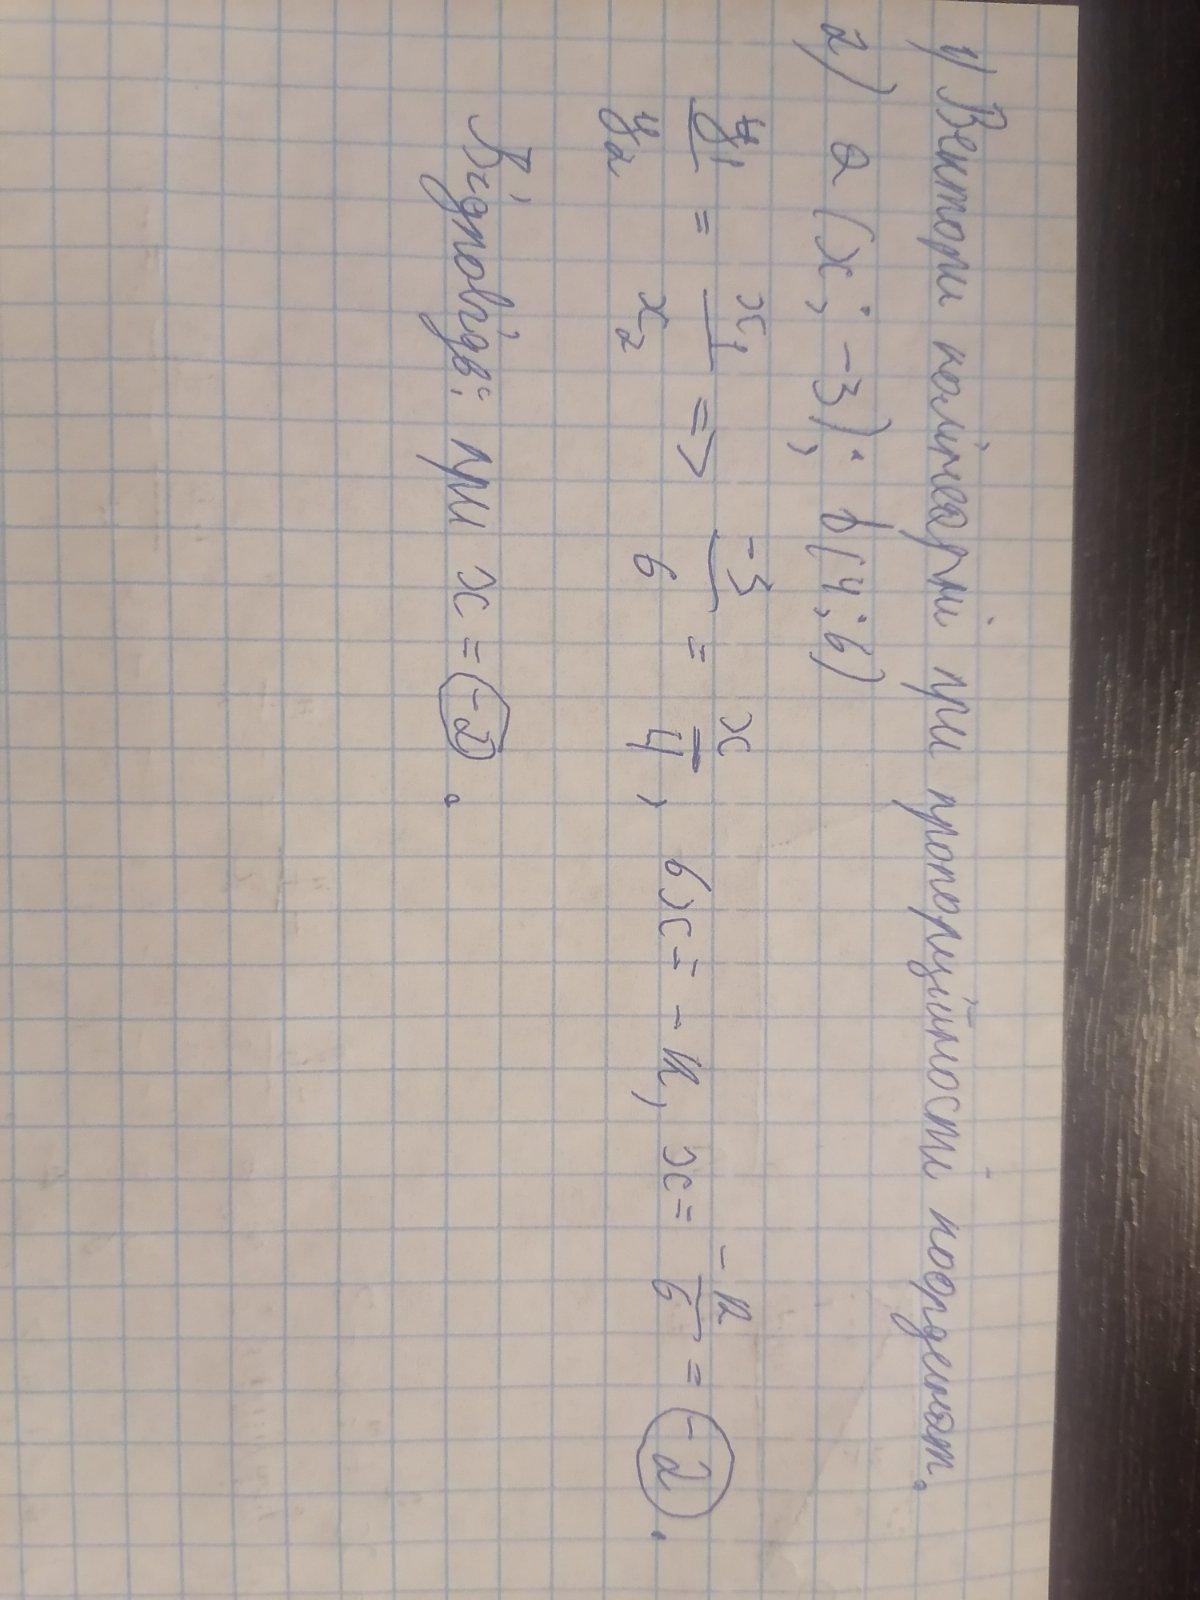 1) Вектори колінеарні при пропорційності координат.
2) a (x; -3); b(4; 6)
y₁/y₂ = x₁/x₂ => -3/6 = x/4, 6x = -12, x = -12/6 = -2.
Відповідь: при x = -2.